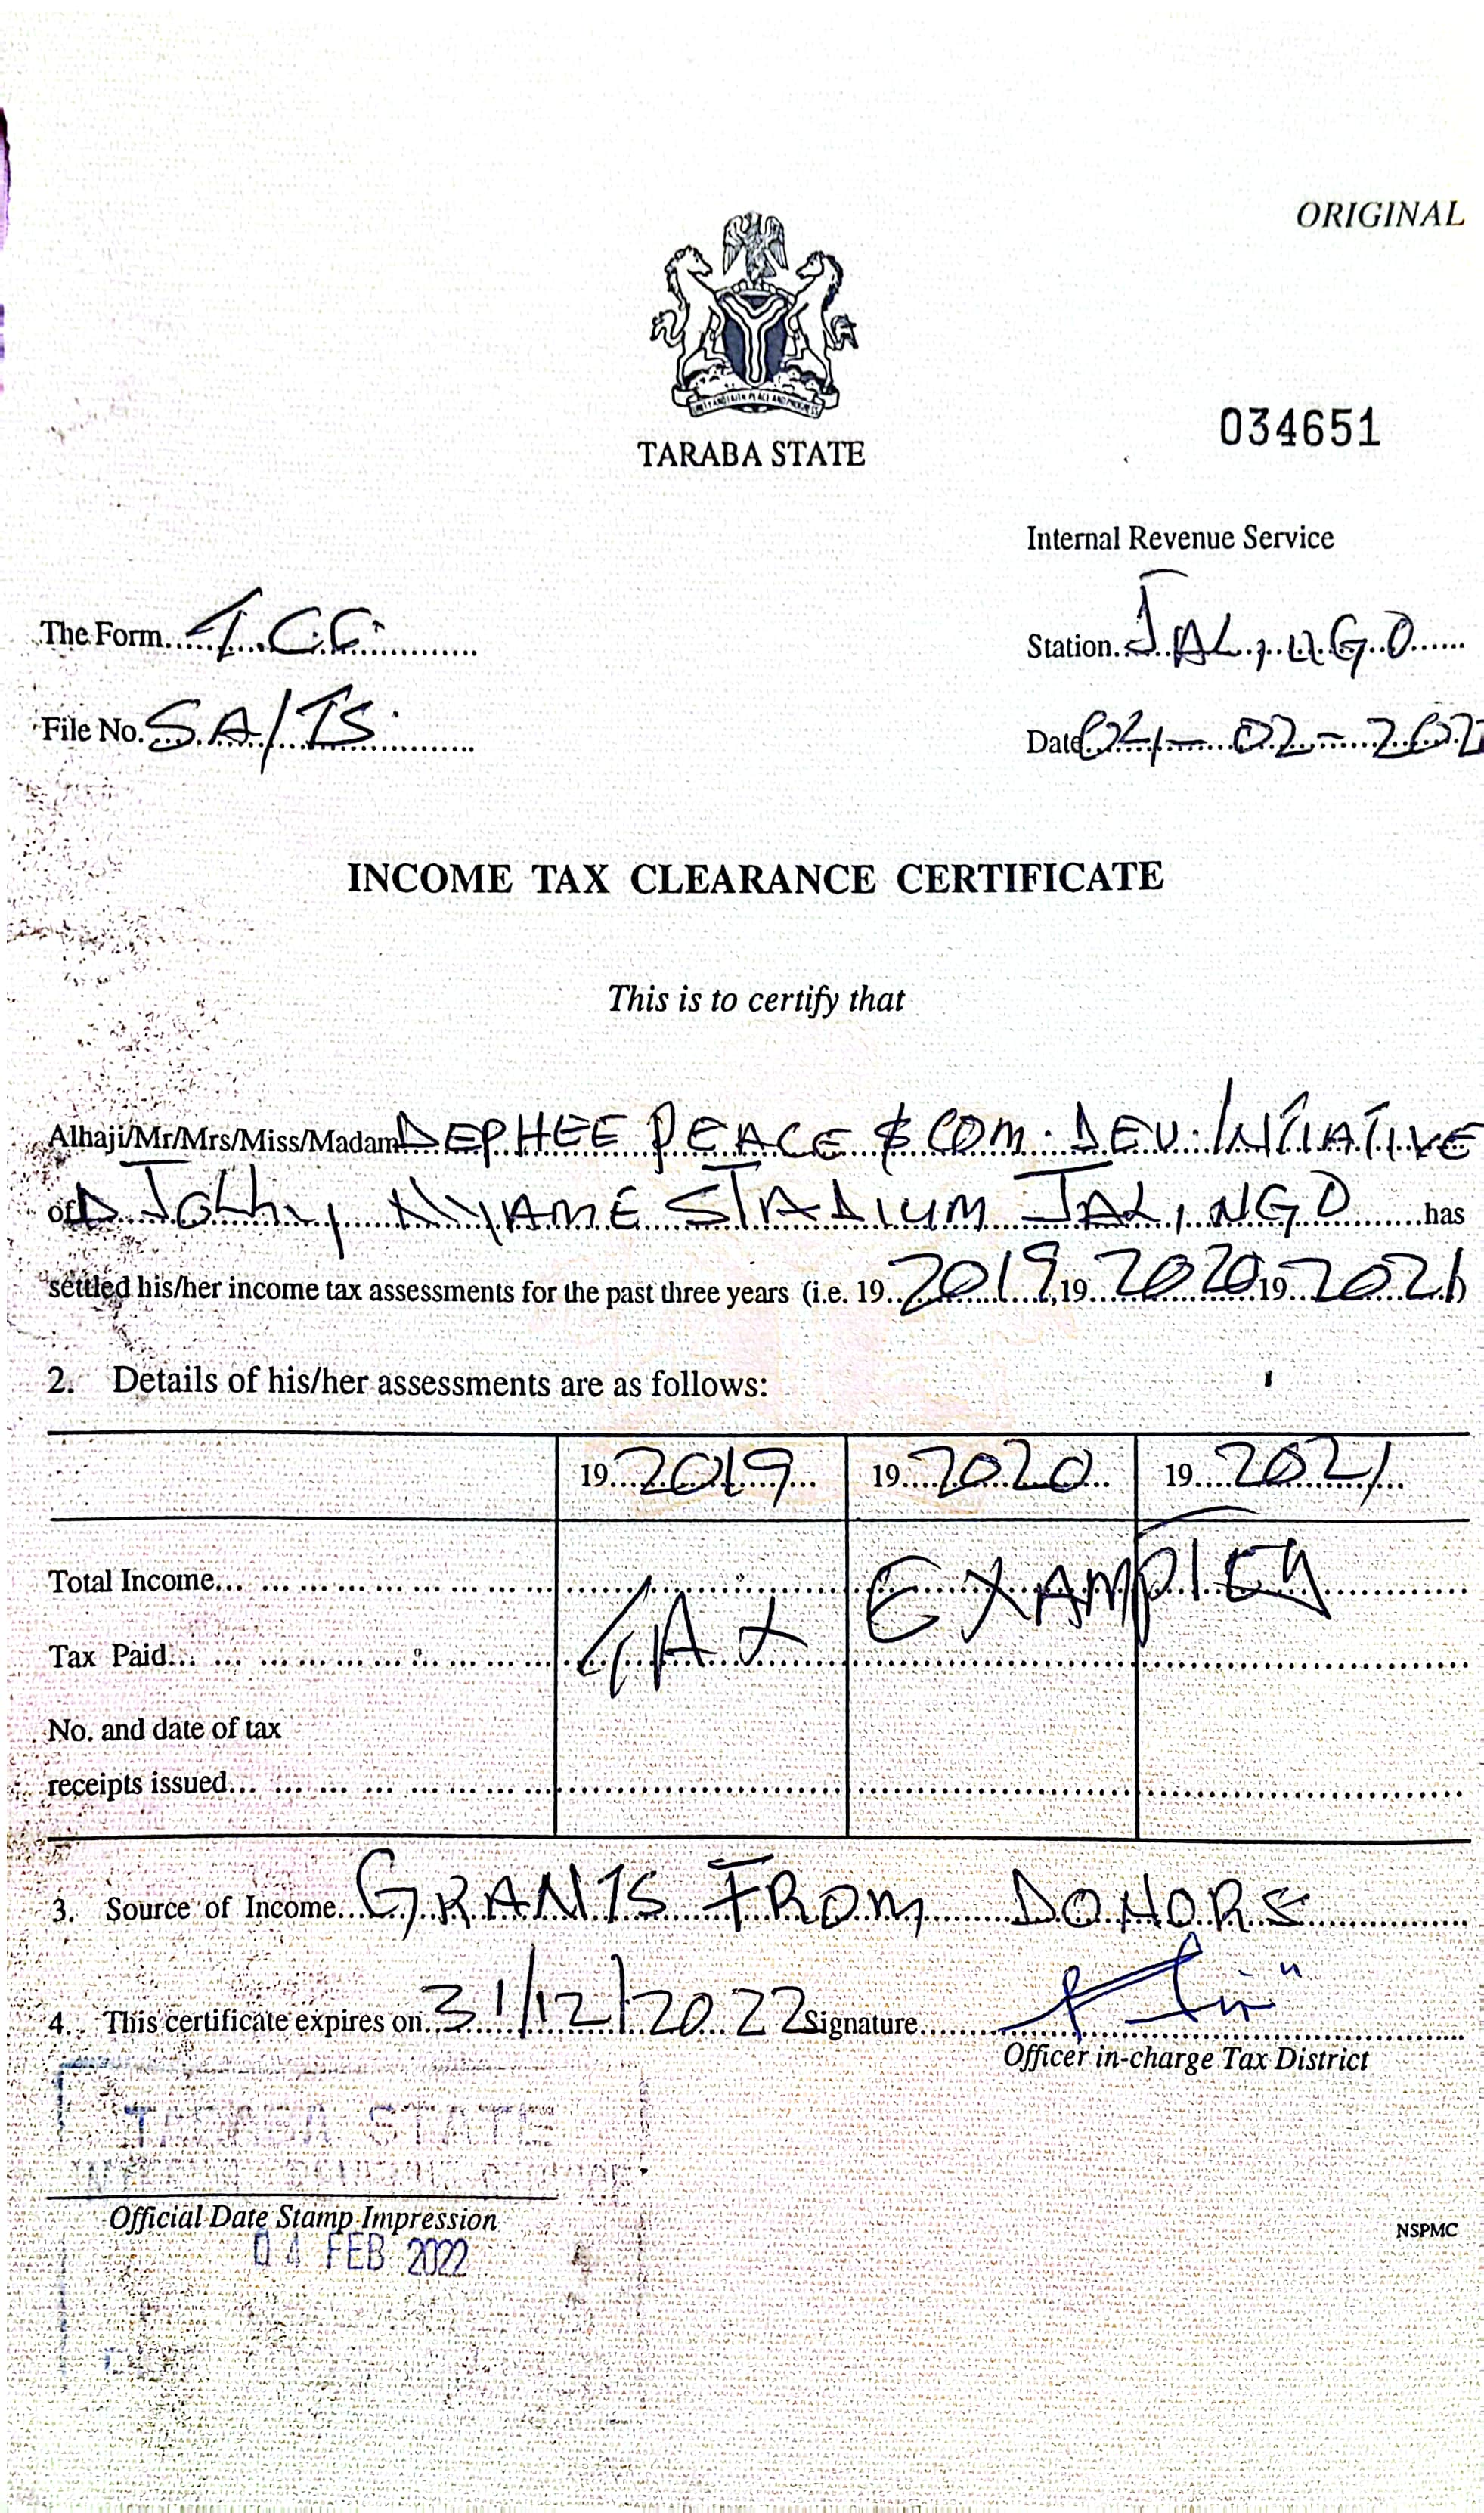 ORIGINAL
TARABA STATE
034651
Internal Revenue Service
The Form.....T.C.C.............
Station..JAL,NGO......
File No. S.A/TS.............
Date 04-02-202
INCOME TAX CLEARANCE CERTIFICATE
This is to certify that
Alhaji/Mr/Mrs/Miss/Madam DEPHEE PEACE & COM. DEV. INITIATIVE
of Jolly NYAME STADIUM JAL,NGO........has
settled his/her income tax assessments for the past three years (i.e. 19..2019,19..2020 19..2021)
2. Details of his/her assessments are as follows:
19..2019... 19..2020... 19....2021...
Total Income... TAX EXAMPTED
Tax Paid...
No. and date of tax
receipts issued...
3. Source of Income...GRANTS FROM DONORS
4. This certificate expires on..31/12/2022 Signature..........
Officer in-charge Tax District
TARABA STATE
Official Date Stamp Impression
04 FEB 2022
NSPMC